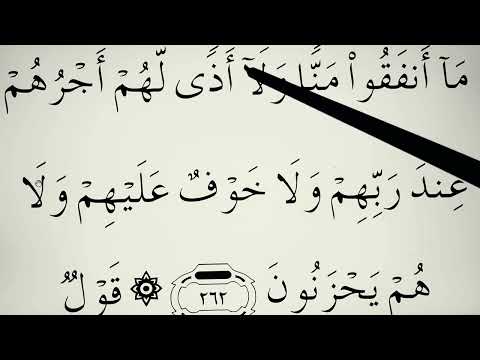 مَآ أَنفَقُوا۟ مَنًّا وَلَآ أَذًى لَّهُمْ أَجْرُهُمْ
عِندَ رَبِّهِمْ وَلَا خَوْفٌ عَلَيْهِمْ وَلَا
هُمْ يَحْزَنُونَ ٢٦٢ ۞ قَوْلٌ